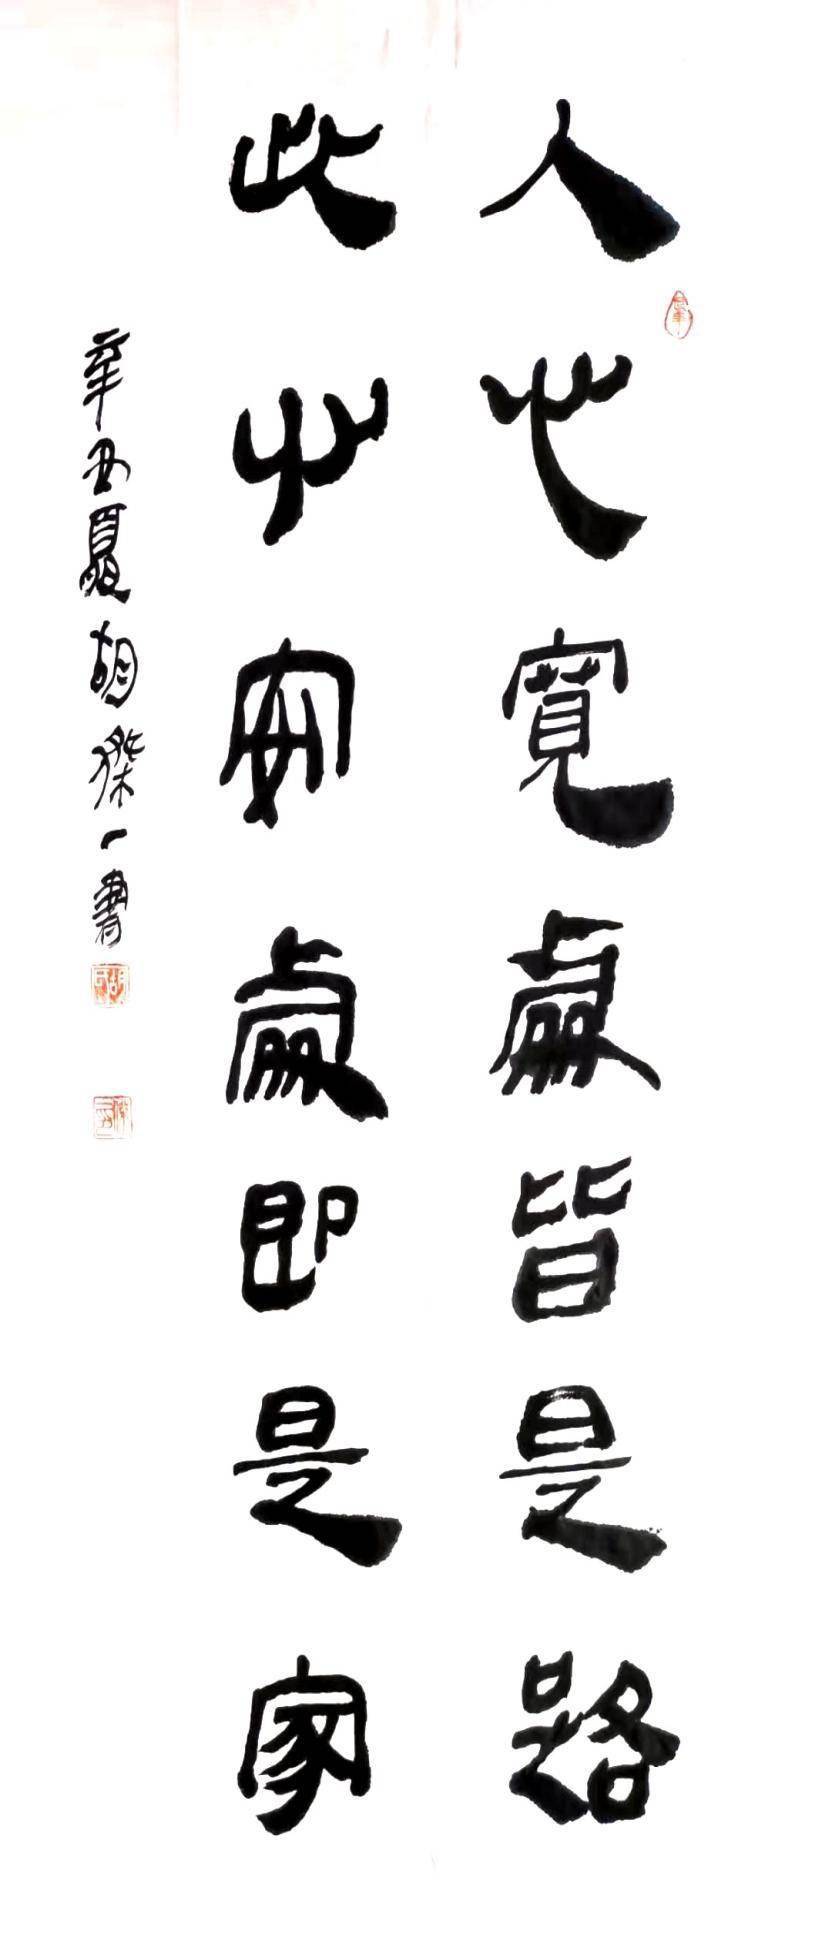 人心寬處皆是路
此心安處即是家
辛丑夏胡傑一書